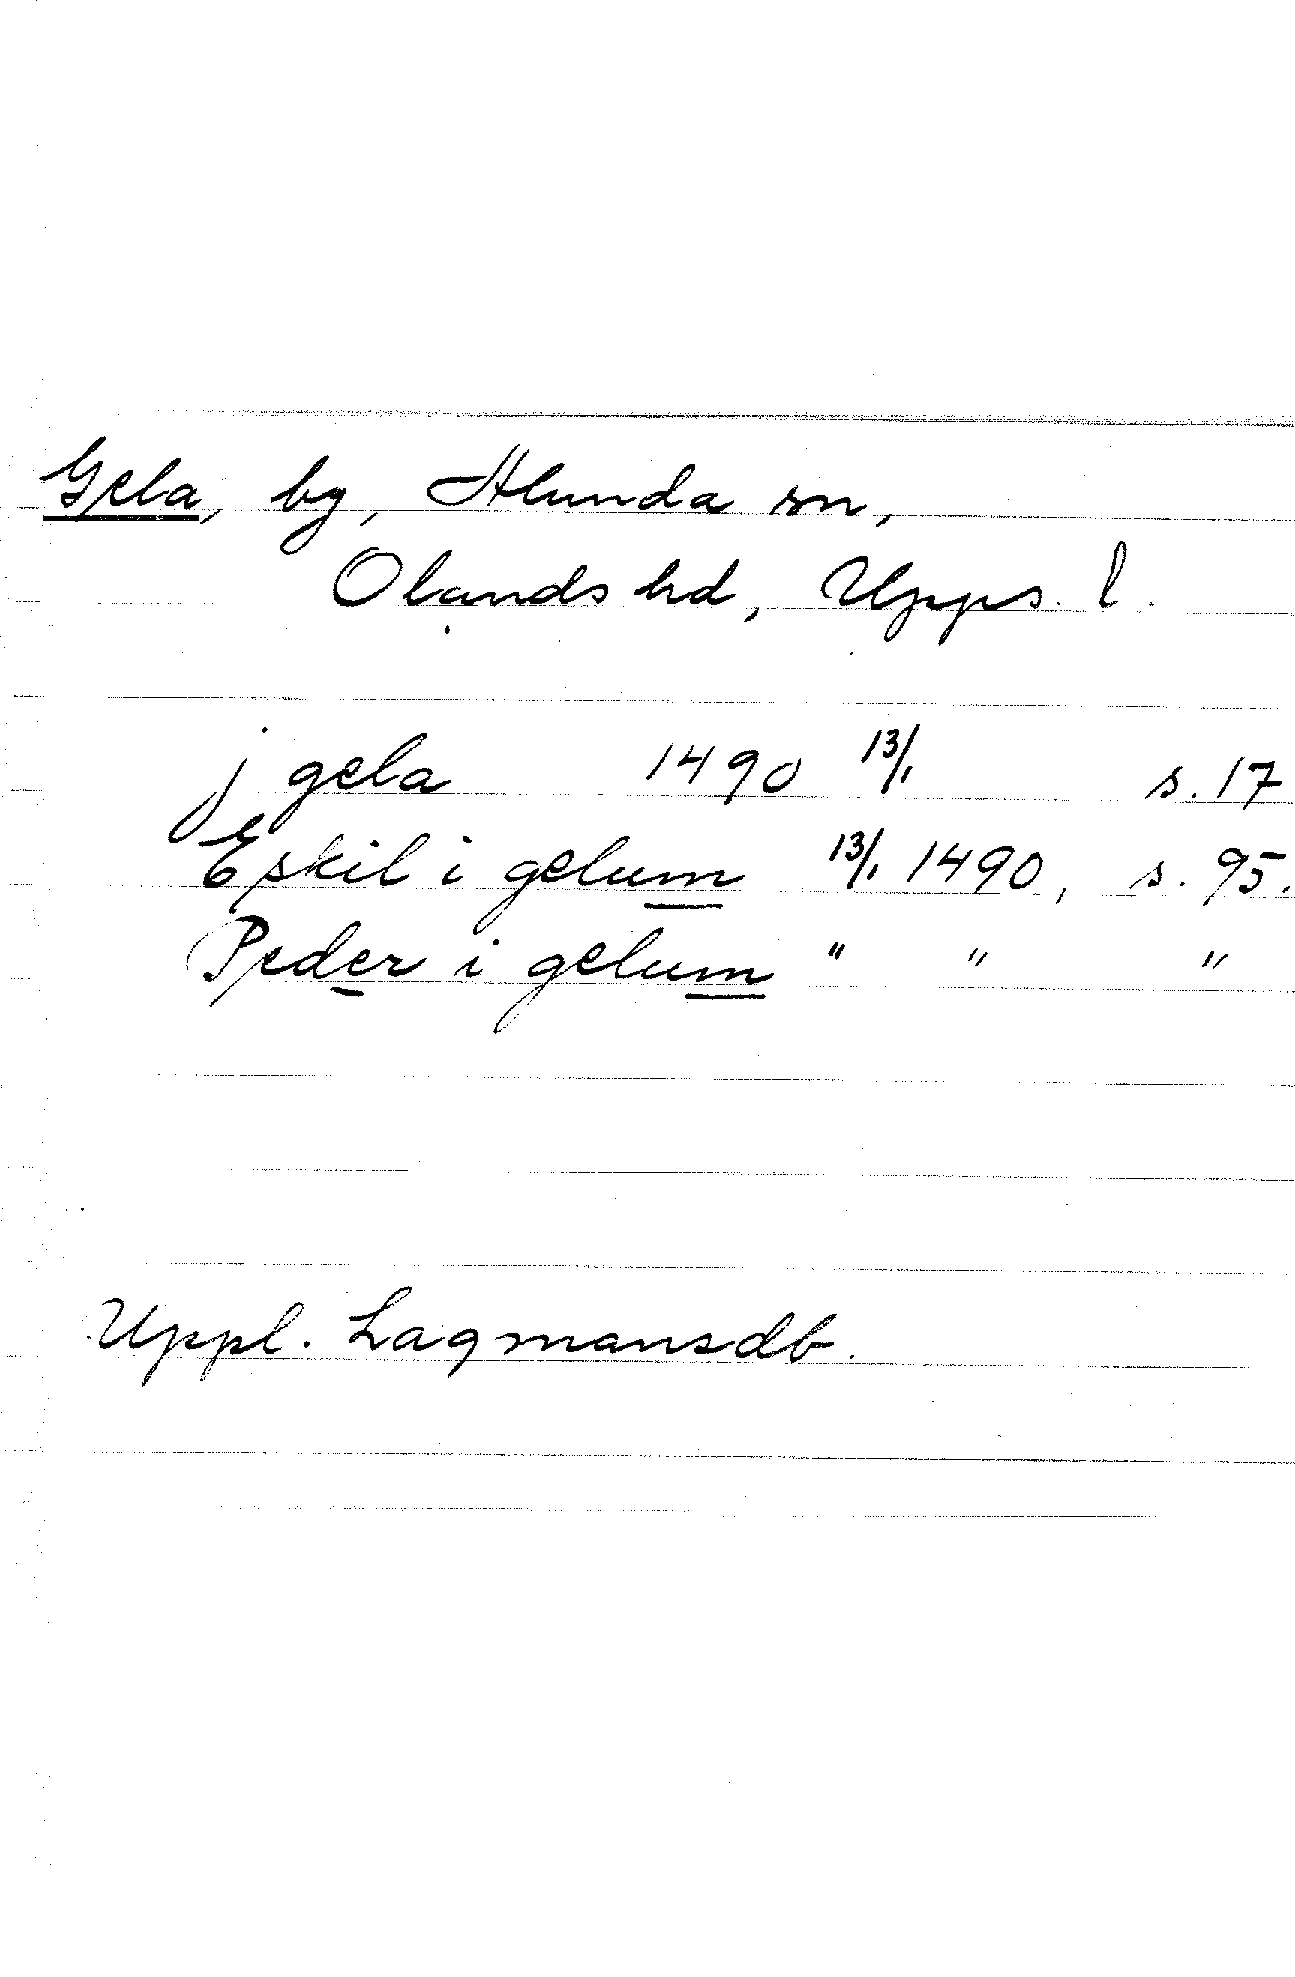 Gela, by, Alunda sn,
Olands hd, Upps. l.
j gela 1490 13/1 s. 17
Eskil i gelum 13/1 1490, s. 95.
Peder i gelum " " "
Uppl. Lagmansdb.